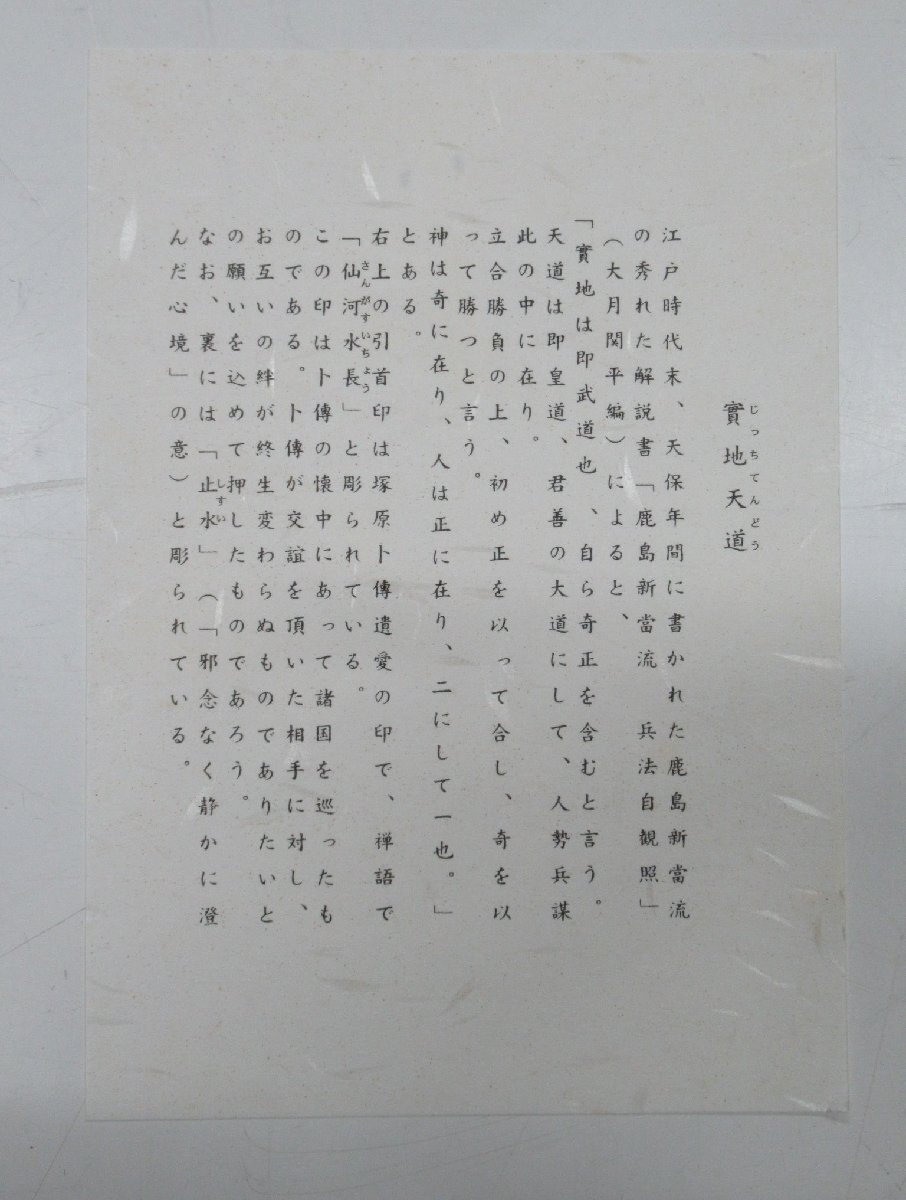 實地天道
じっちてんどう
江戸時代末、天保年間に書かれた鹿島新當流
の秀れた解説書「鹿島新當流 兵法自観照」
（大月関平編）によると、
「實地は即武道也、自ら奇正を含むと言う。
天道は即皇道、君善の大道にして、人勢兵謀
此の中に在り。
立合勝負の上、初め正を以って合し、奇を以
って勝つと言う。
神は奇に在り、人は正に在り、二にして一也。」
とある。
右上の引首印は塚原卜傳遺愛の印で、禅語で
「仙河水長」と彫られている。
さんがすいちょう
この印は卜傳の懐中にあって諸国を巡ったも
のである。卜傳が交誼を頂いた相手に対し、
お互いの絆が終生変わらぬものでありたいと
の願いを込めて押したものであろう。
なお、裏には「止水」（「邪念なく静かに澄
しすい
んだ心境」の意）と彫られている。